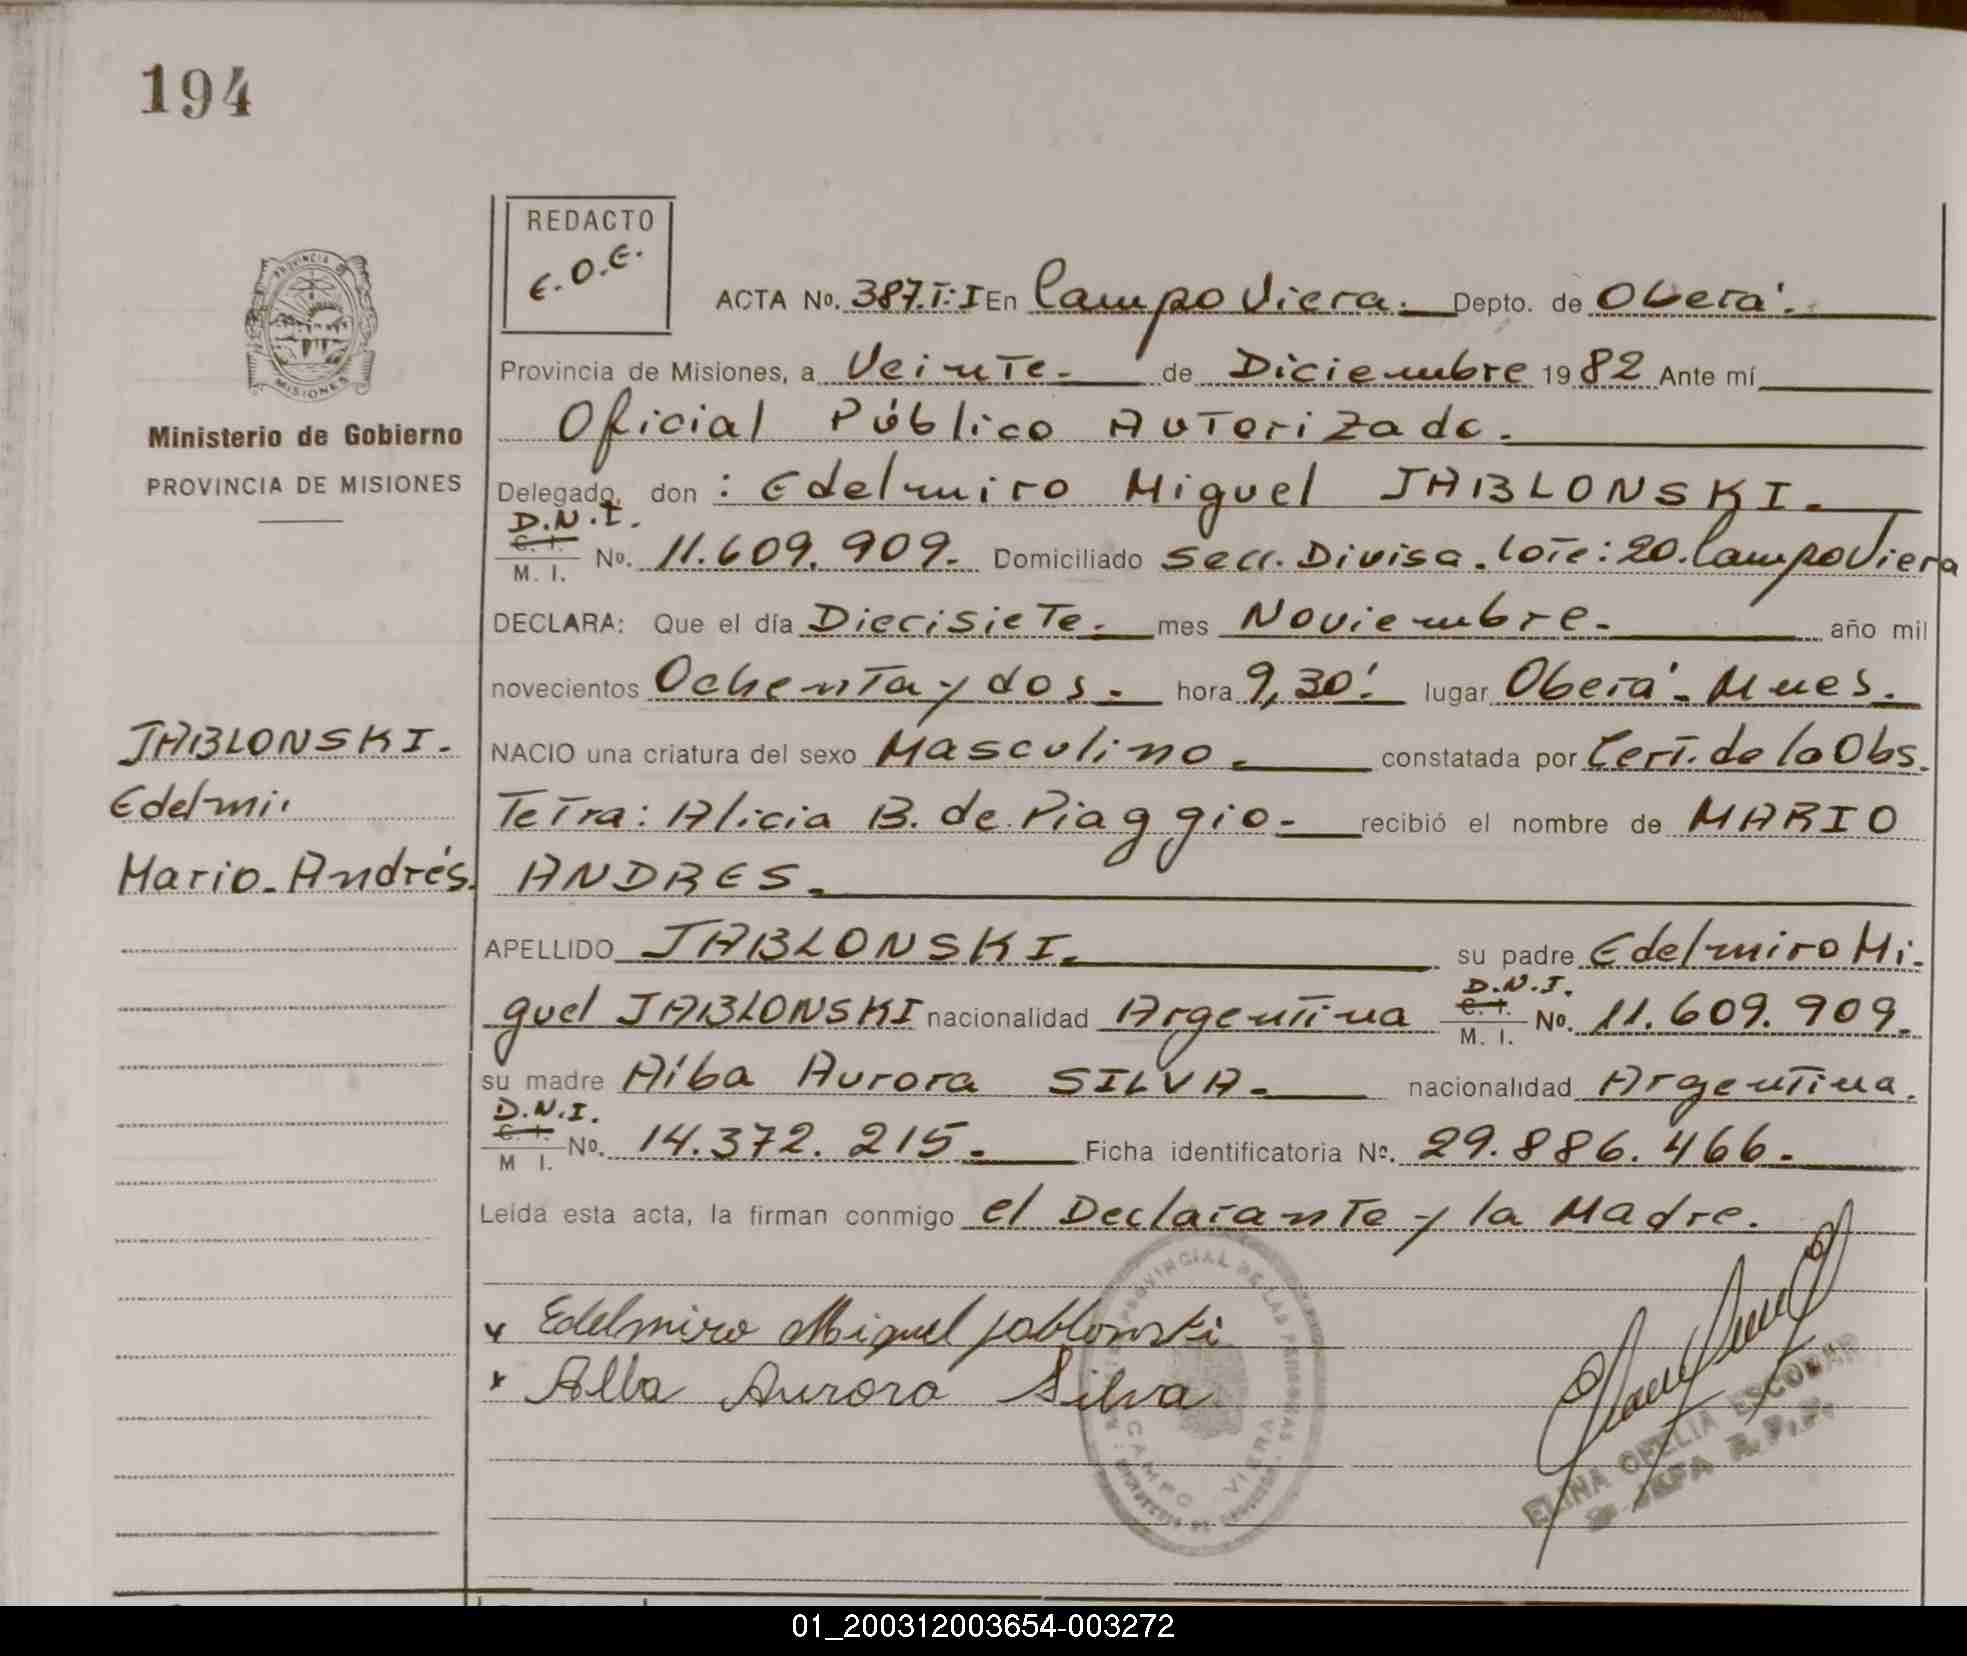 194
REDACTO
E.O.E.
ACTA No. 387.T:I En Campo Viera. Depto. de Oberá.
PROVINCIA DE
MISIONES
Ministerio de Gobierno
PROVINCIA DE MISIONES
Provincia de Misiones, a Veinte. de Diciembre 1982 Ante mí
Oficial Público Autorizado.
Delegado, don : Edelmiro Miguel JABLONSKI.
D.N.I.
C. I.
M. I.
No. 11.609.909. Domiciliado Secc. Divisa. Lote: 20. Campo Viera
DECLARA: Que el día Diecisiete. mes Noviembre. año mil
novecientos Ochenta y dos. hora 9,30! lugar Oberá. Mnes.
JABLONSKI.
Edelmi.
Mario. Andrés.
NACIO una criatura del sexo Masculino. constatada por Cert. de la Obs.
Tetra: Alicia B. de Piaggio. recibió el nombre de MARIO
ANDRES.
APELLIDO JABLONSKI. su padre Edelmiro Mi.
guel JABLONSKI nacionalidad Argentina D.N.I. C. I. M. I. No. 11.609.909.
su madre Alba Aurora SILVA. nacionalidad Argentina.
D.N.I.
C. I.
M I.
No. 14.372.215. Ficha identificatoria No. 29.886.466.
Leída esta acta, la firman conmigo el Declarante y la Madre.
x Edelmiro Miguel Jablonski
x Alba Aurora Silva
PROVINCIAL DE LAS PERSONAS
CAMPO VIERA
ELINA OFELIA ESCOBAR
JEFA R.P.P.
01_200312003654-003272